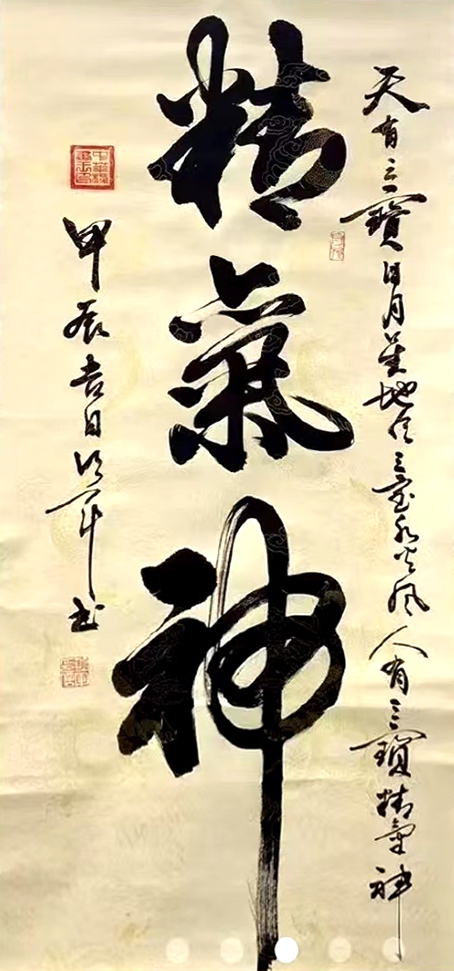 天有三寶日月星地有三宝水火風人有三寶精氣神
精氣神
甲辰吉日书